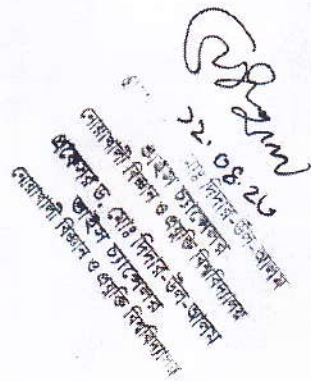 মোঃ দিদার-উল-আলম
ভাইস চ্যান্সেলর
নোয়াখালী বিজ্ঞান ও প্রযুক্তি বিশ্ববিদ্যালয়
প্রফেসর ড. মোঃ দিদার-উল-আলম
ভাইস চ্যান্সেলর
নোয়াখালী বিজ্ঞান ও প্রযুক্তি বিশ্ববিদ্যালয়